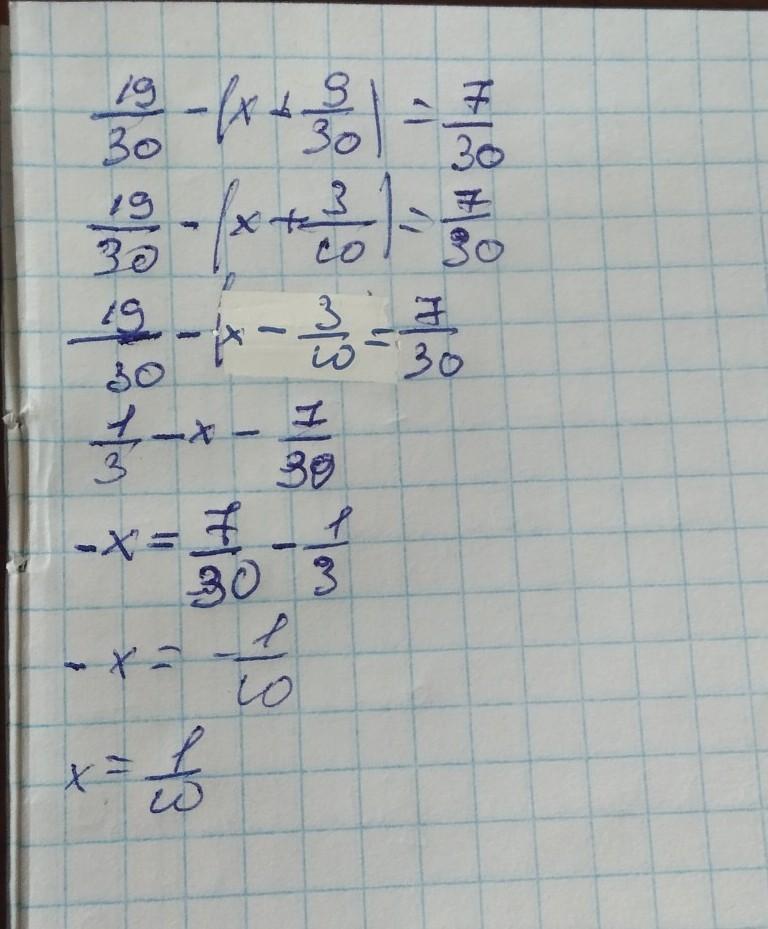 19/30 - (x + 9/30) = 7/30
19/30 - (x + 3/10) = 7/30
19/30 - (x - 3/10 = 7/30
1/3 - x - 7/30
-x = 7/30 - 1/3
-x = -1/10
x = 1/10